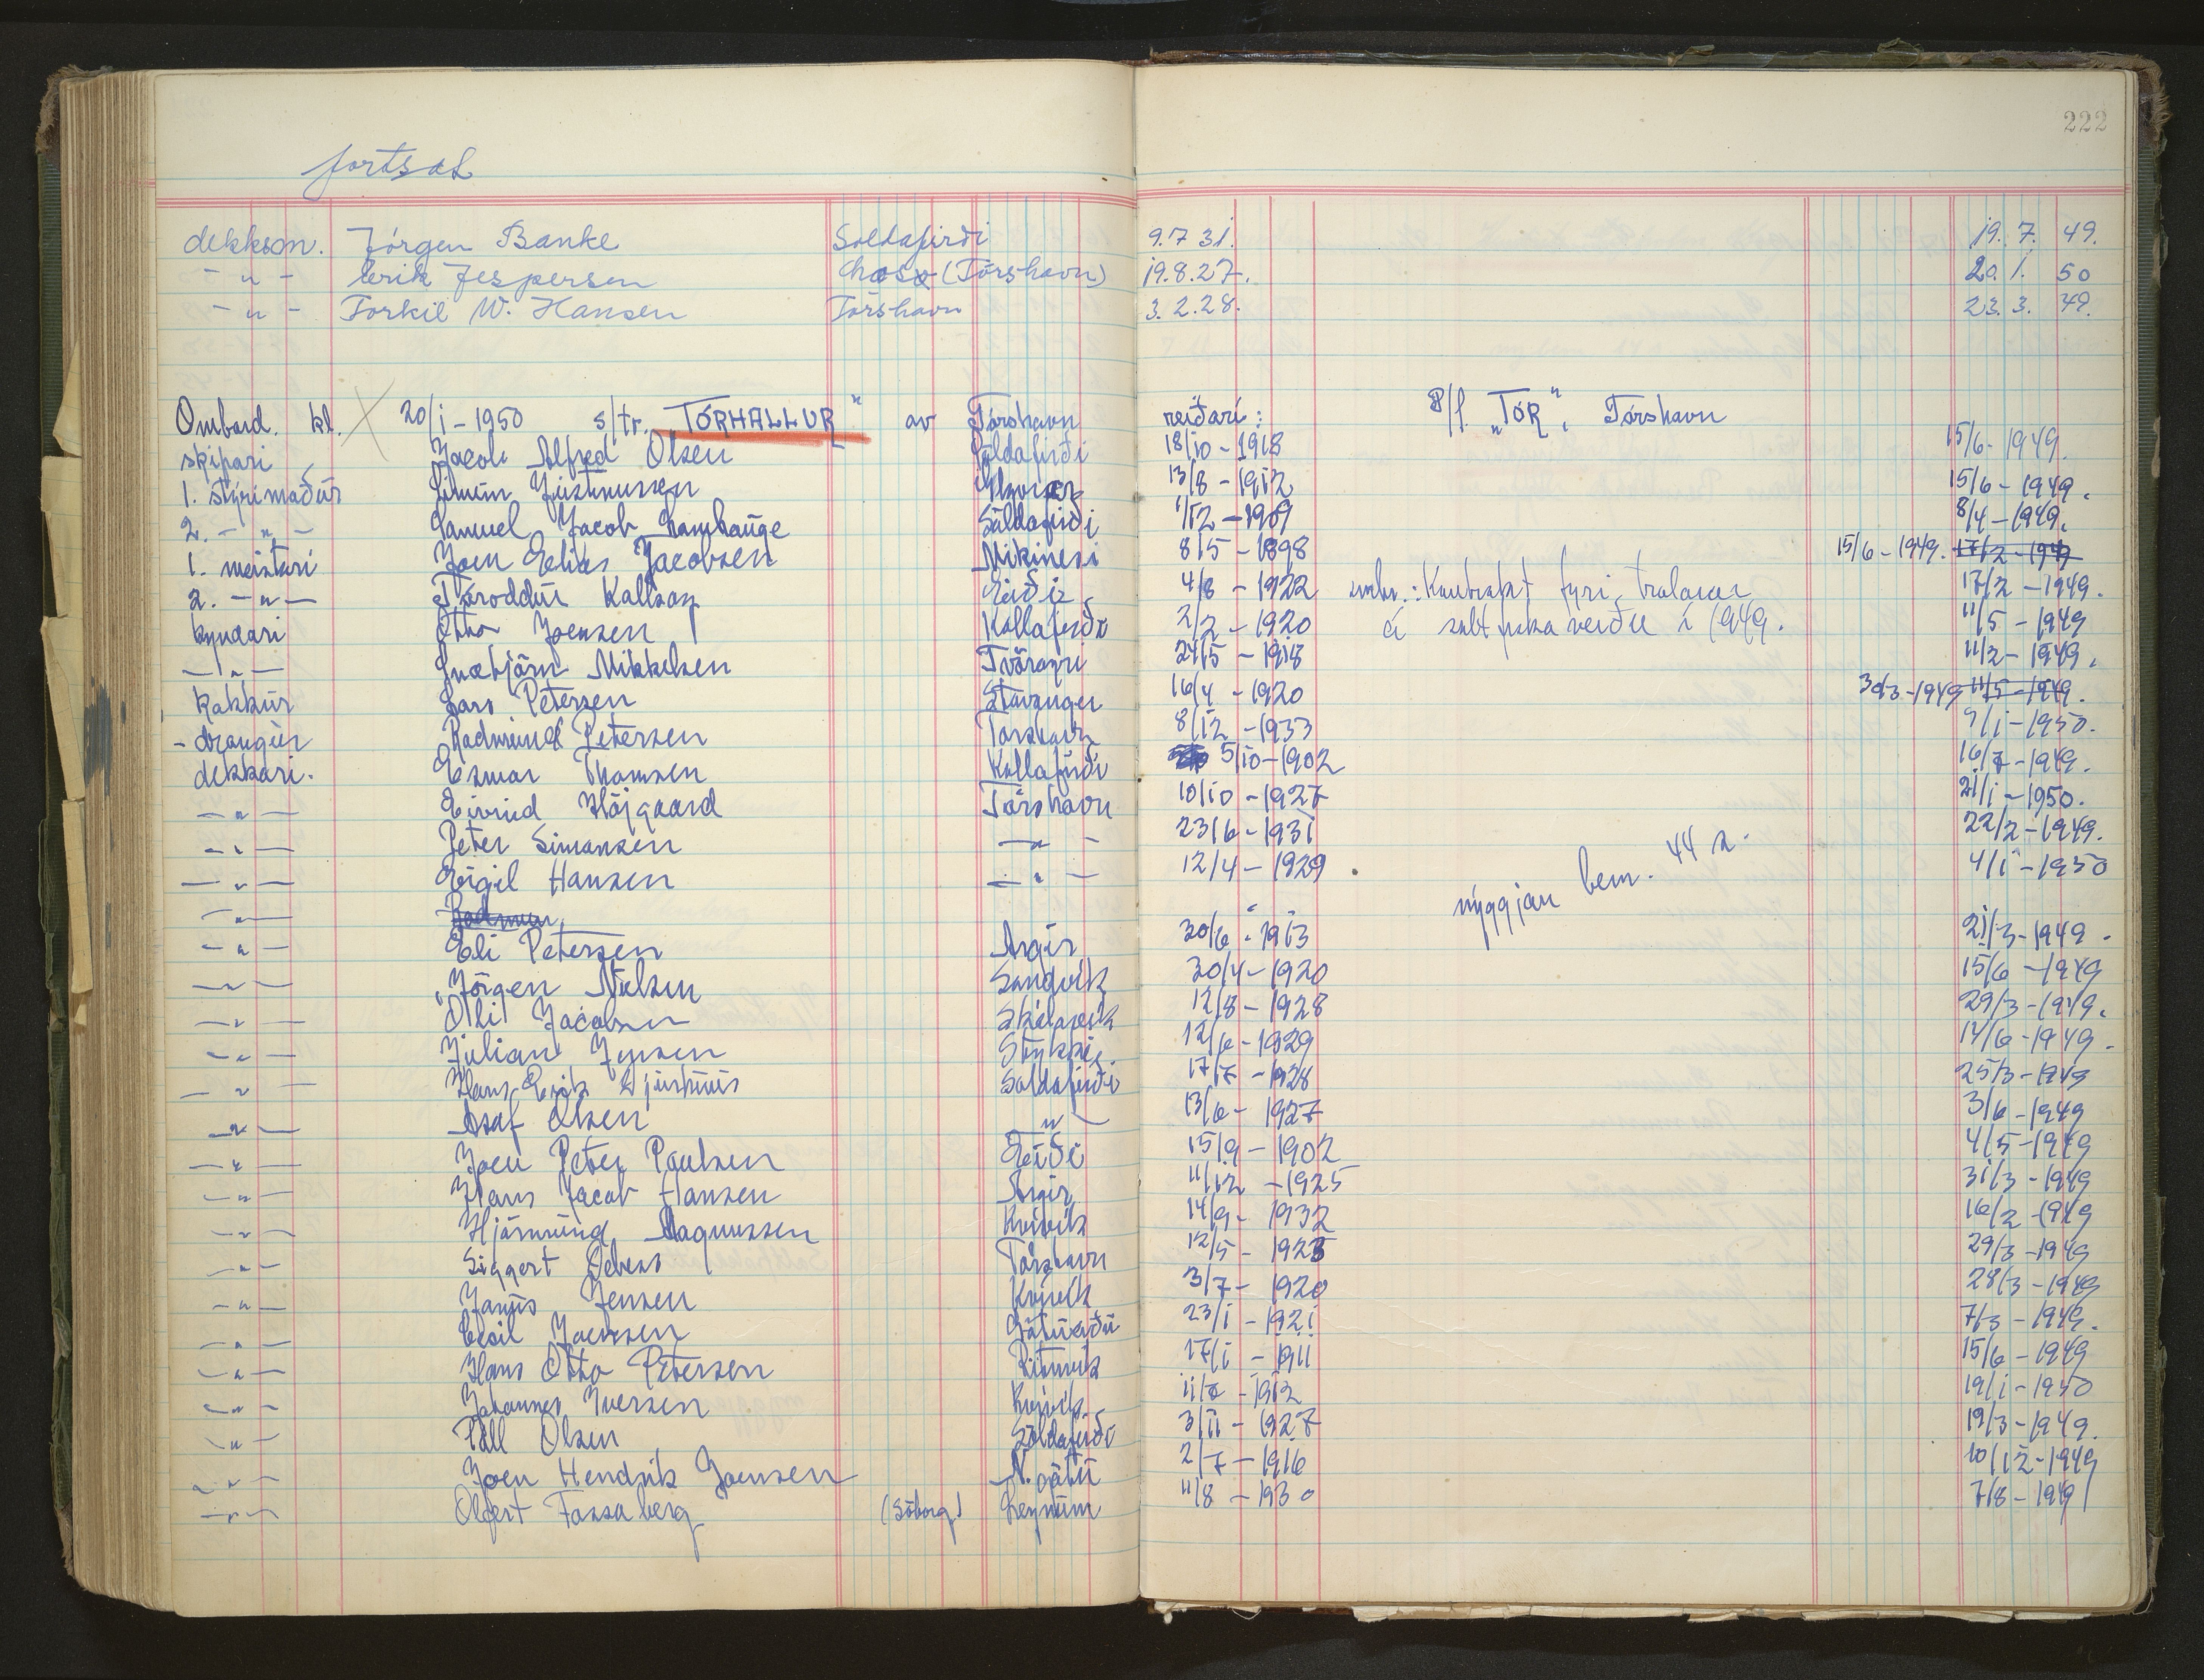 222
fortsat
dekksm. Jórgen Banke Soldafirði 9.7 31. 19. 7. 49.
- " - Erik Jespersen (Tórshavn) 19.8.27. 20. 1. 50
- " - Torkil W. Hansen Tórshavn 3. 2.28. 23. 3. 49.
Ombord. kl. 20/1-1950 s/tr. "TÓRHALLUR" av Tórshavn reiðari: P/f. "TÓR", Tórshavn
skipari Jacob Alfred Olsen Söldafirði 18/10-1918 15/6-1949.
1. stýrimaður Justinussen 13/8-1912 15/6-1949.
2. - " - Samuel Jacob Grambauge Söldafirði 1/12-1909 8/4-1949.
1. meistari Joen Elias Jacobsen Mikinesi 8/5-1898 15/6-1949. 17/2-1949
2. - " - Tóroddur Kallsoy Eiði 4/8-1922 Kontrakt fyri trolarar 17/2-1949.
kyndari Otto Joensen Kollafirði 2/2-1920 á saltfiskaveiðu í 1949. 11/5-1949
- " - Snæbjörn Mikkelsen Tvöroyri 24/5-1918 11/2-1949.
kokkur Lars Petersen Stavanger 16/4-1920 30/3-1949 11/5-1949.
- drongur Radmund Petersen Torshavn 8/12-1933 9/1-1950.
dekkari. Esmar Thomsen Kollafirði 5/10-1902 16/7-1949.
- " - Eivind Højgaard Tórshavn 10/10-1927 21/1-1950.
- " - Peter Simonsen - " - 23/6-1931 22/2-1949.
- " - Eigil Hansen - " - 12/4-1929 nýggjan bem. 44 4/1-1950
- " - Radmun
- " - Eli Petersen Argir 30/6-1913 21/3-1949.
- " - Jörgen Nielsen Sandvik 30/4-1920 15/6-1949
- " - Olli Jacobsen Skálavík 12/8-1928 29/3-1949.
- " - Julian 12/6-1929 14/6-1949.
- " - Hans Erik Djurhuus Soldafirði 17/7-1928 25/3-1949
- " - Asaf Olsen - " - 13/6-1927 3/6-1949
- " - Joen Peter Poulsen Eiði 15/9-1902 4/5-1949
- " - Hans Jacob Hansen Argir 11/12-1925 31/3-1949
- " - Hjörmund Magnussen Kvívík 14/9-1932 16/2-1949
- " - Siggert Debess Tórshavn 12/5-1925 29/3-1949
- " - Janus Jensen Kvívík 3/7-1920 28/3-1949
- " - Joensen 23/1-1921 7/3-1949.
- " - Hans Otto Petersen Rituvík 17/1-1911 15/6-1949
- " - Johannes Iversen Kvívík 1912 19/1-1950
- " - Páll Olsen Söldafirði 3/11-1927 19/3-1949.
- " - Joen Hendrik Joensen N. gøtu 2/7-1916 10/12-1949
- " - Olfert Fossaberg (Söborg) Leynum 11/8-1930 7/8-1949